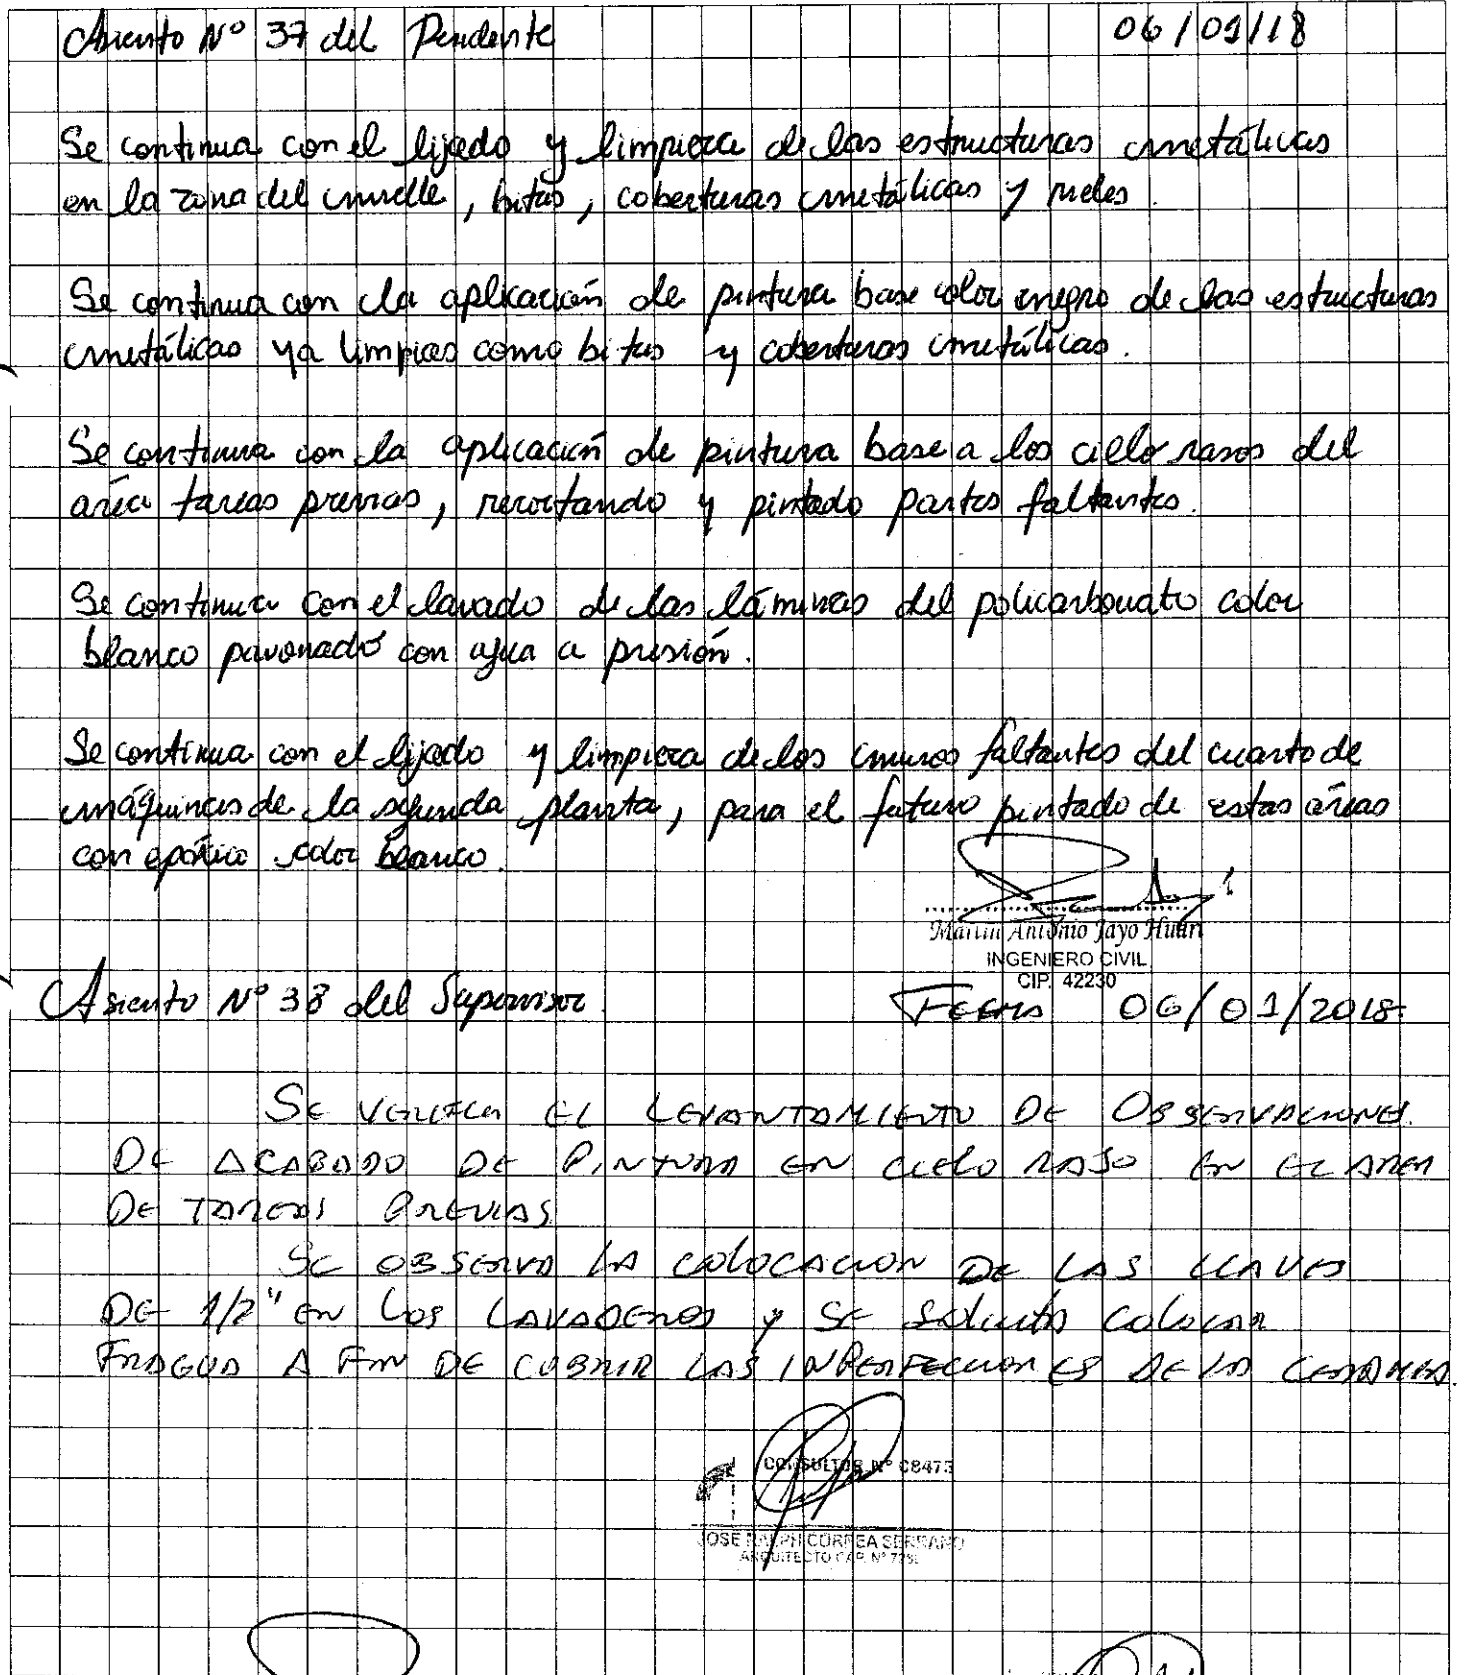 Asiento Nº 37 del Residente 06/01/18
Se continua con el lijado y limpieza de las estructuras metálicas
en la zona del muelle, bitas, coberturas metálicas y rieles.
Se continua con la aplicación de pintura base color negro de las estructuras
metálicas ya limpias como bitas y coberturas metálicas.
Se continua con la aplicación de pintura base a los cielo rasos del
área tareas previas, recortando y pintado partes faltantes.
Se continua con el lavado de las láminas del policarbonato color
blanco pavonado con agua a presión.
Se continua con el lijado y limpieza de los muros faltantes del cuarto de
máquinas de la segunda planta, para el futuro pintado de estas áreas
con epóxico color blanco.
Martin Antonio Jayo Huari
INGENIERO CIVIL
CIP. 42230
Asiento Nº 38 del Supervisor. FECHA 06/01/2018.
SE VERIFICA EL LEVANTAMIENTO DE OBSERVACIONES
DE ACABADO DE PINTURA EN CIELO RASO EN EL AREA
DE TAREAS PREVIAS
SE OBSERVA LA COLOCACION DE LAS LLAVES
DE 1/2" EN LOS LAVADEROS Y SE SOLICITA COLOCAR
FRAGUA A FIN DE CUBRIR LAS INPERFECCIONES DE LA CERAMICA.
CONSULTOR Nº C8473
JOSE RALPH CORREA SERRANO
ARQUITECTO CAP. Nº